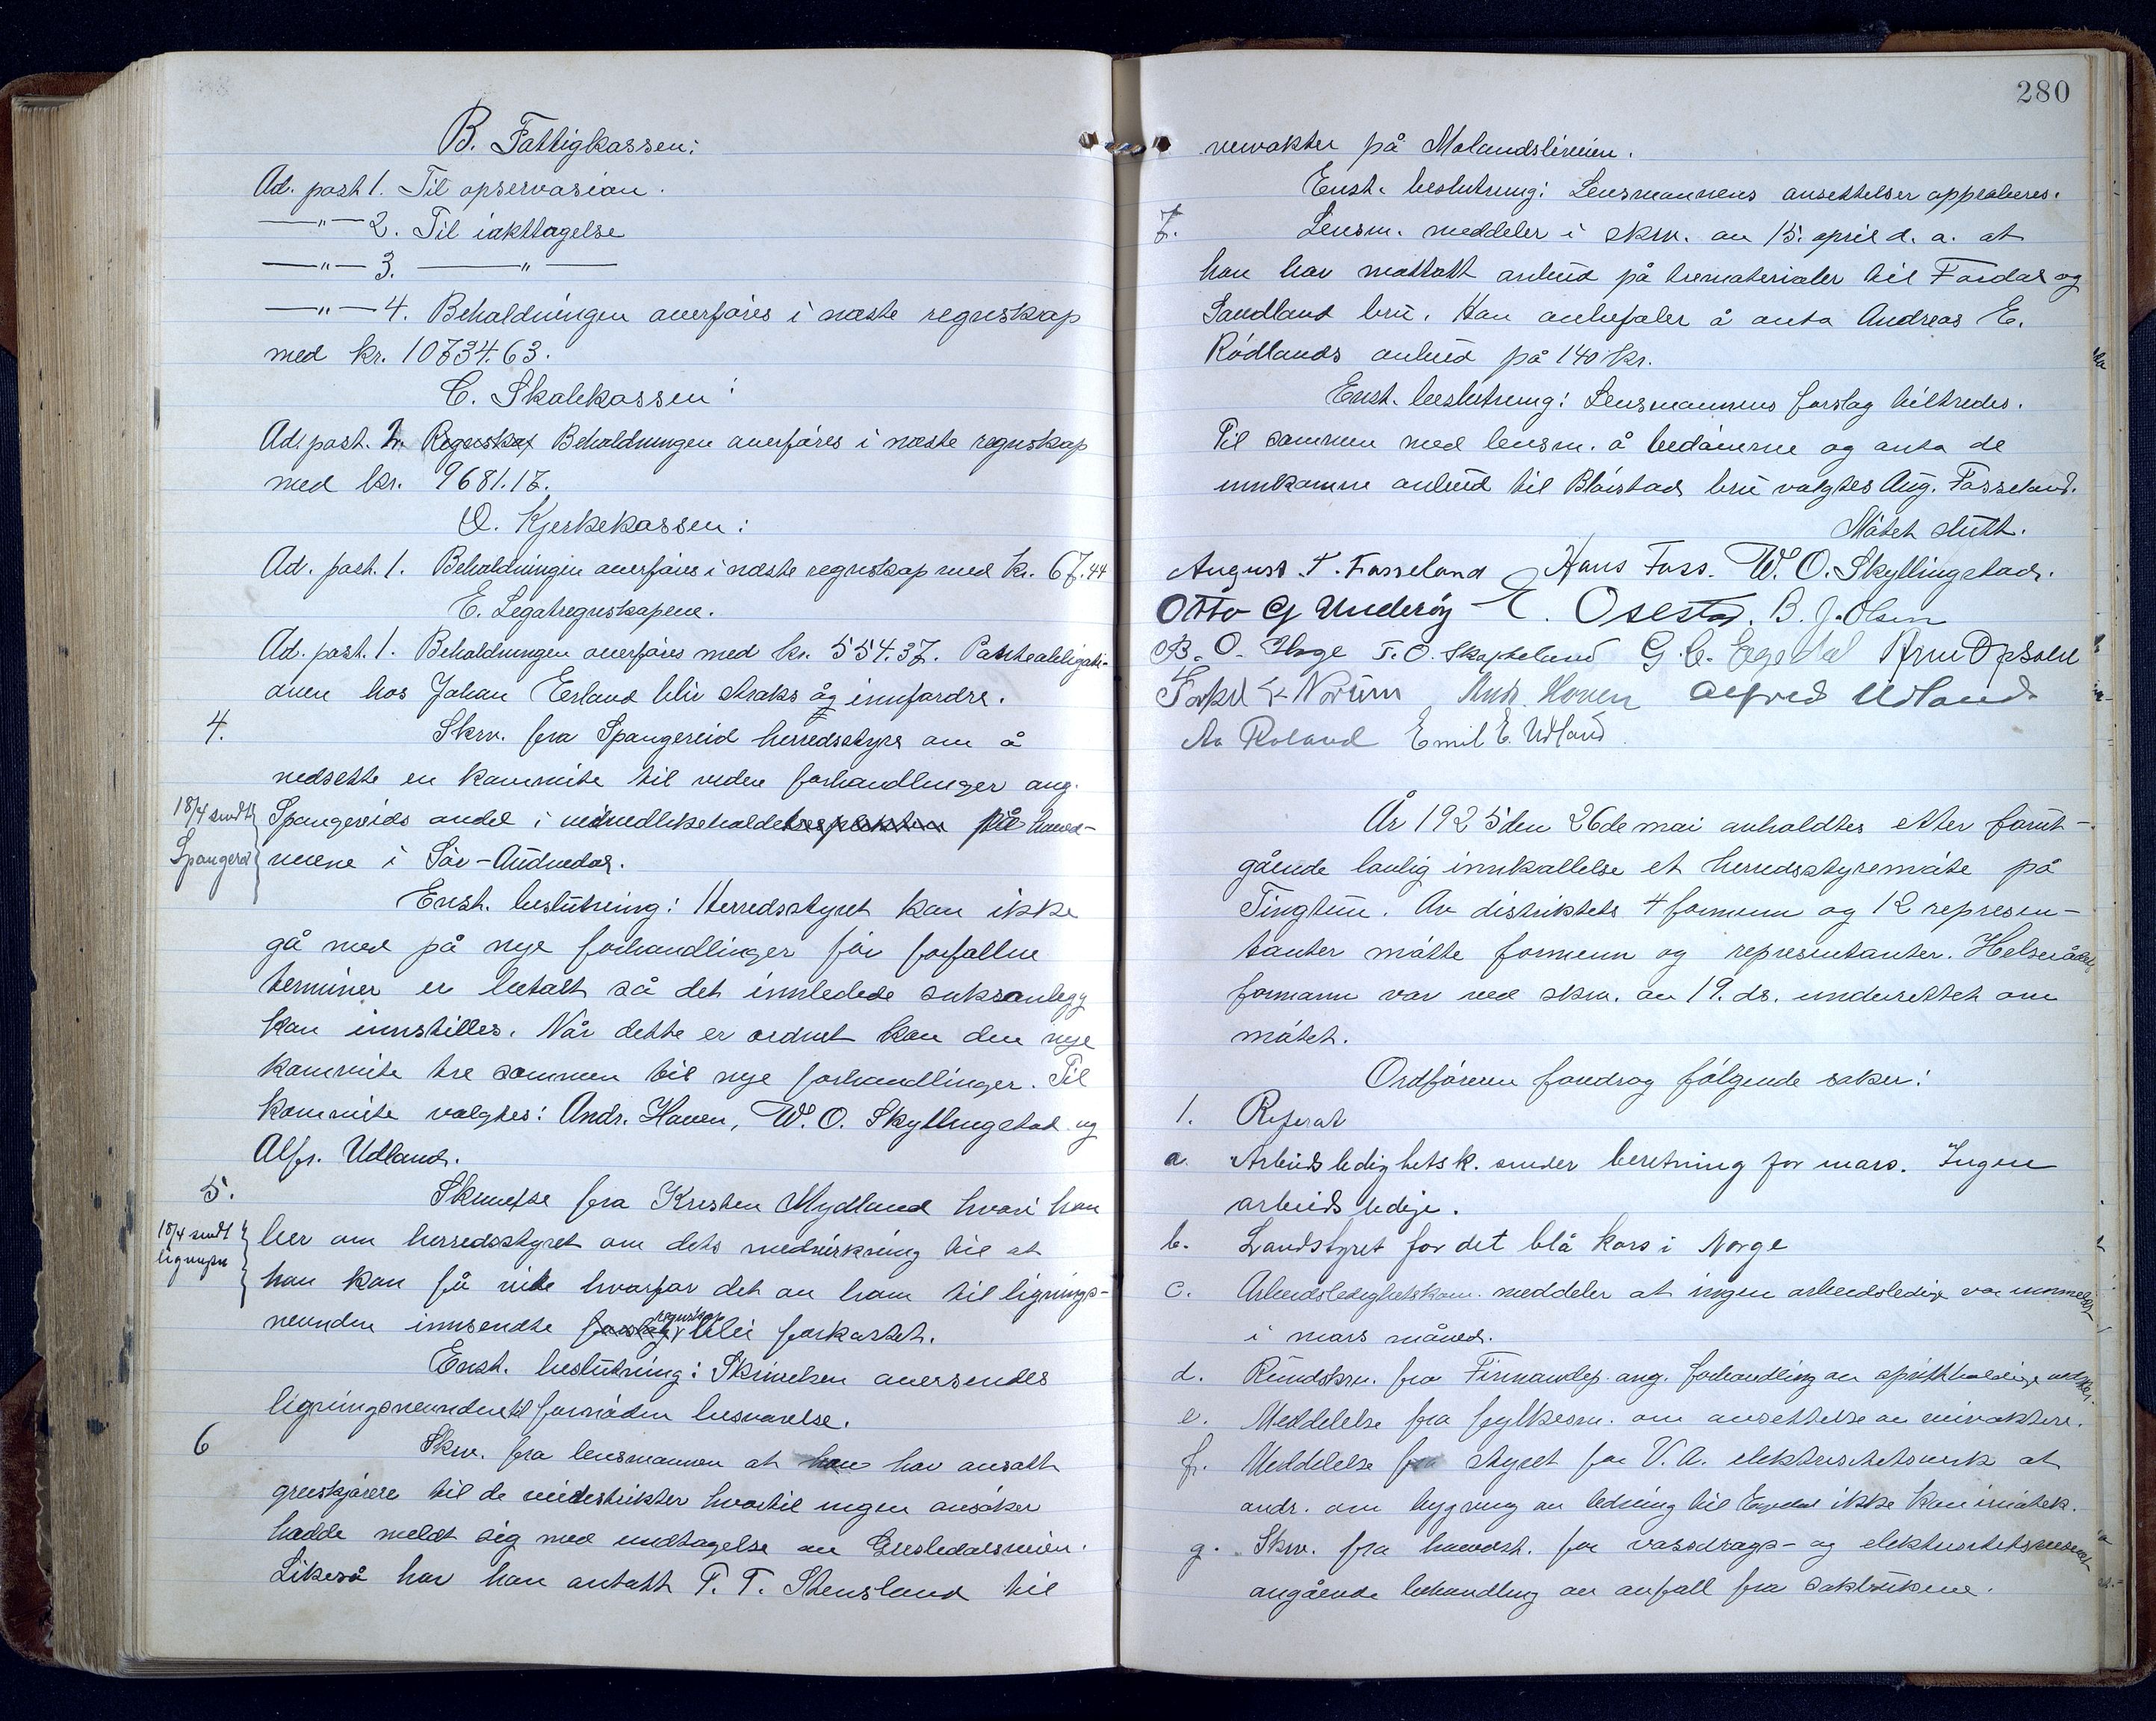 B. Fattigkassen:
Ad. post 1. Til opservasion.
—"— 2. Til iakttagelse
—"— 3. —"—
—"— 4. Beholdningen overføres i næste regnskap
med kr. 10734.63.
C. Skolekassen:
Ad. post. Regnskap Beholdningen overføres i næste regnskap
med kr. 9681.17.
D. Kjerkekassen:
Ad. post. 1. Beholdningen overføres i næste regnskap med kr. 67.44
E. Legatregnskapene.
Ad. post. 1. Beholdningen overføres med kr. 554.37. Panteobligasi-
onen hos Johan Eerland blir straks å innfordre.
4. Skriv. fra Spangereid herredsstyre om å
nedsette en kommite til videre forhandlinger ang.
18/4 sendt Spangereids andel i veivedlikeholdet på hoved-
Spangereid veiene i Sør-Audnedal.
Enst. beslutning: Herredsstyret kan ikke
gå med på nye forhandlinger før forfallne
terminer er betalt så det innledede saksanlegg
kan innstilles. Når dette er ordnet kan den nye
kommite tre sammen til nye forhandlinger. Til
kommite valgtes: Andr. Hoven, W. O. Skyllingstad og
Alfr. Udland.
5. Skrivelse fra Kristen Mydland hvori han
18/4 sendt ber om herredsstyret om dets medvirkning til at
lignngsn han kan få vite hvorfor det av ham til lignings-
nevnden innsendte forslag regnskap blei forkastet.
Enst. beslutning: Skrivelsen oversendes
ligningsnevnden til fornøden besvarelse.
6 Skriv. fra lensmannen at han har ansatt
gruskjørere til de veidistrikter hvortil ingen ansøker
hadde meldt sig med undtagelse av
Likeså har han antatt T. T. Stensland til
280
veivakter på Molandsliveien.
Enst. beslutning: Lensmannens ansettelser approberes.
7. Lensm. meddeler i skriv. av 15. april d. a. at
han har mottatt anbud på trematerialer til Fordal og
Sandland bru. Han anbefaler å anta Andreas E.
Rødlands anbud på 140 kr.
Enst. beslutning: Lensmannens forslag tiltredes.
Til sammen med lensm. å bedømme og anta de
innkomne anbud til Blørstad bru valgtes Aug. Fasseland.
Møtet slutt.
August. T. Fasseland Hans Foss. W. O. Skyllingstad.
Otto G Underøy E. Osestad. B. J. Olsen
B. O. Hage T. O. Skofteland G. C. Egedal Arne Opsahl
Torkel Norum Andr. Hoven Alfred Udland
Aa Roland Emil E. Udland.
År 1925 den 26de mai anholdtes etter forut-
gående lovlig innkallelse et herredsstyremøte på
Tingtun. Av distriktets 4 formenn og 12 represen-
tanter møtte formenn og representanter. Helserådets
formann var ved skriv. av 19. ds. underrettet om
møtet.
Ordføreren foredrog følgende saker:
1. Referat
a. Arbeidsledighetsk. sender beretning for mars. Ingen
arbeidsledige.
b. Landstyret for det blå kors i Norge
c. Arbeidsledighetskom. meddeler at ingen arbeidsledige var innmeldt
i mars måned.
d. Rundskriv. fra Finnansdep. ang. forhandling av spritholdige vesker.
e. Meddelelse fra fylkesm. om ansettelse av veivoktere.
f. Meddelelse fra styret for V. A. elektrisitetsverk at
andr. om bygning av ledning til Egedal ikke kan imøtek.
g. Skriv. fra hovedst. for vassdrags- og elektrisitetsvesenet
angående behandling av avfall fra sakbrukene.